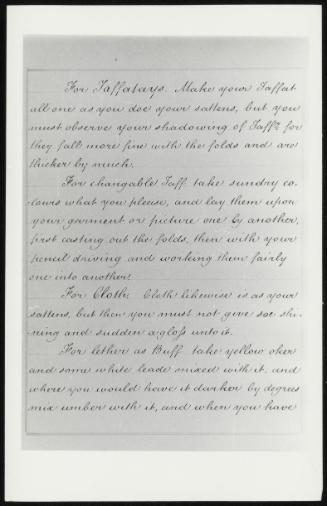 For Taffatays. Make your Taffat.
all one as you doe your sattens, but you
must observe your shadowing of Taffa for
they fall more fine with the folds and are
thicker by much.
For changable Taff. take sundry co,
lours what you please, and lay them upon
your garment or picture one by another,
first casting out the folds, then with your
pencil driving and working them fairly
one into another.
For Cloth. Cloth likewise is as your
sattens, but then you must not give soe shi-
ning and sudden a gloss unto it.
For lether as Buff. take yellow oker
and some white leade mixed with it, and
where you would have it darker by degrees
mix umber with it, and when you have